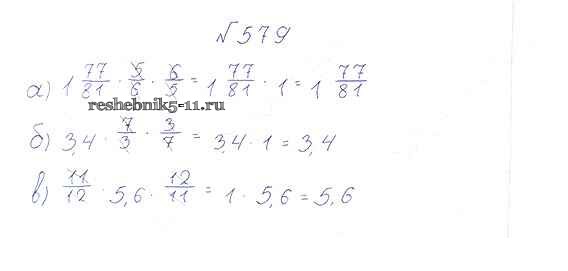 №579
а) 1 77/81 · 5/6 · 6/5 = 1 77/81 · 1 = 1 77/81
reshebnik5-11.ru
б) 3,4 · 7/3 · 3/7 = 3,4 · 1 = 3,4
в) 11/12 · 5,6 · 12/11 = 1 · 5,6 = 5,6